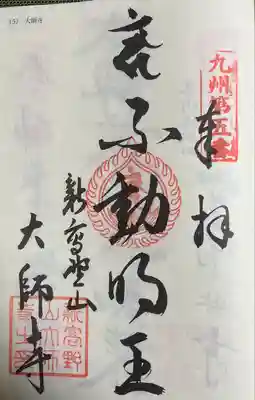 大師寺
九州第五
奉拝
不動明王
新高野山
大師寺
新高野
山大師
寺之印